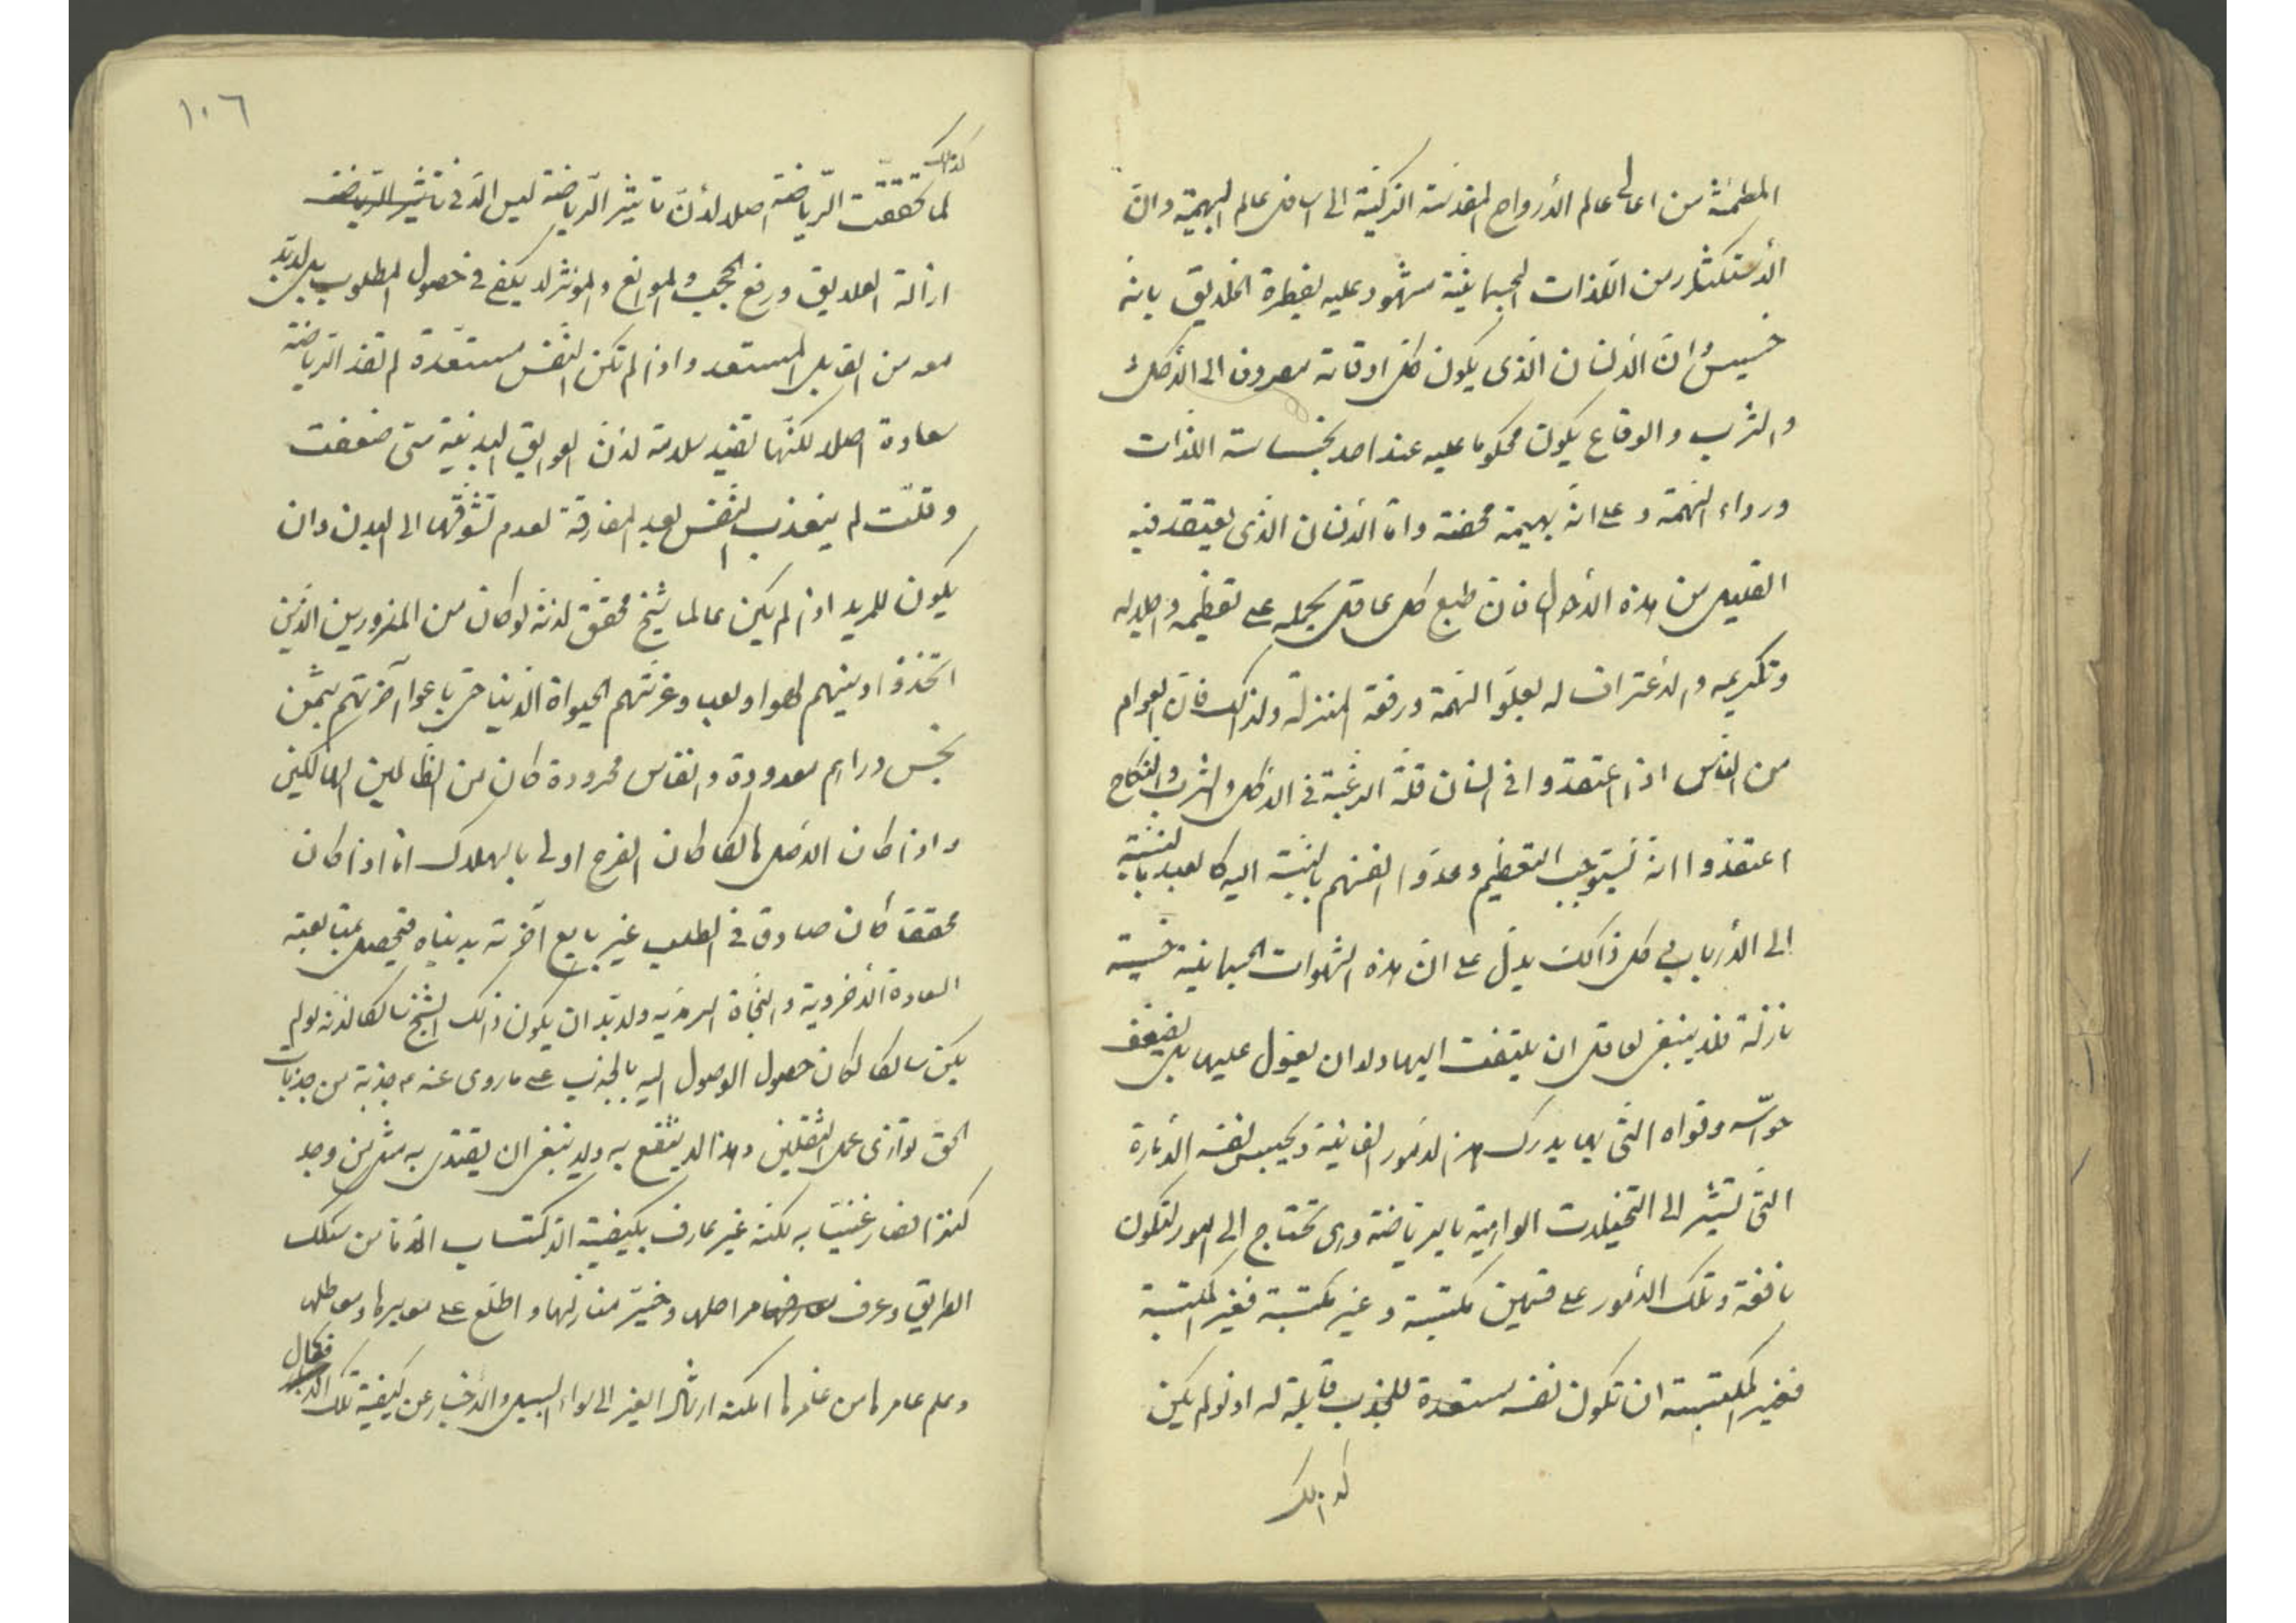 المطمئنة من اعالى عالم الأرواح المقدسة الزكية الى اسافل عالم البهيمة وان
الأستكثار من اللذات الجسمانية مشهود عليه بفطرة الخلايق بانه
خسيس وان الانسان الذى يكون كل اوقاته مصروفا الى الأكل
والشرب والوقاع يكون محكوما عليه عند احد بخساسة اللذات
ورداءة الهمة و على انه بهيمة محضة واما الأنسان الذى يعتقد فيه
القليل من هذه الأحوال فان طبع كل عاقل يحمله على تعظيمه واجلاله
وتكريمه والاعتراف له بعلو الهمة ورفعة المنزلة ولذلك فان العوام
من الناس اذا اعتقدوا فى انسان قلة الرغبة فى الاكل والشرب والنكاح
اعتقدوا انه يستوجب التعظيم وعدوا انفسهم بالنسبة اليه كالعبد بالنسبة
الى الأرباب كل ذالك يدل على ان هذه الشهوات الجسمانية خسيسة
نازلة فلا ينبغى لعاقل ان يلتفت اليها ولا ان يعول عليها بل يضعف
حواسه وقواه التى بها يدرك هذه الامور الفانية ويحبس نفسه الأمارة
التى تشير الى التخيلات الواهية بالرياضة وهى تحتاج الى امور لتكون
نافعة وتلك الأمور على قسمين مكتسبة وغير مكتسبة فغير المكتسبة
فغير المكتسبة ان تكون نفسه مستعدة للجذب قابلة له اذ لو لم يكن
كذالك
١٠٦
كذالك
لما تحققت الرياضة اصلا لأن تاثير الرياضة ليس الا فى تاثير الرياضة
ازالة العلايق ورفع الحجب والموانع والمؤثر لا يكفى فى حصول المطلوب بل لابد
معه من القابل المستعد واذا لم تكن النفس مستعدة لم تفد الرياضة
سعادة اصلا لكنها تفيد سلامة لان العوايق البدنية متى ضعفت
وقلت لم يتعذب النفس بعد المفارقة لعدم تشوقها الى البدن وان
يكون للمريد اذا لم يكن عالما شيخ محقق لانه لو كان من المغرورين الذين
اتخذوا دينهم لهوا ولعبا وغرتهم الحيواة الدنيا حتى باعوا آخرتهم بثمن
بخس دراهم معدودة وانفاس محدودة كان من الظالمين الهالكين
واذا كان الاصل هالكا كان الفرع اولى بالهلاك اما اذا كان
محققا كان صادقا فى الطلب غير بايع آخرته بدنياه فتحصل بمتابعته
السعادة الأخروية والنجاة السرمدية ولابد ان يكون ذلك الشيخ سالكا لانه لو لم
يكن سالكا لكان حصول الوصول اليه بالجذب على ما روى عنه م جذبة من جذبات
الحق توازى عمل الثقلين وهذا لا ينتفع به ولا ينبغى ان يقتدى به مثل من وجد
كنزا فصار غنيا به لكنه غير عارف بكيفية الاكتساب اما من سلك
الطريق وعرف مراحلها وخبر منازلها واطلع على معابرها ومعاطلها
وعلم عامرها من غامرها امكنه ارشاد الغير الى سواء السبيل والأخبار عن كيفية تلك